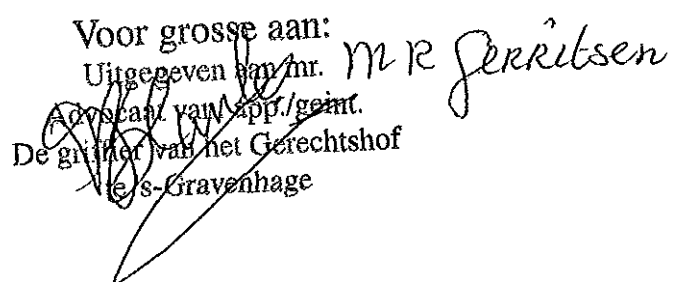 Voor grosse aan:
Uitgegeven aan mr. MR Gerritsen
Advocaat van app./geint.
De griffier van het Gerechtshof
te 's-Gravenhage